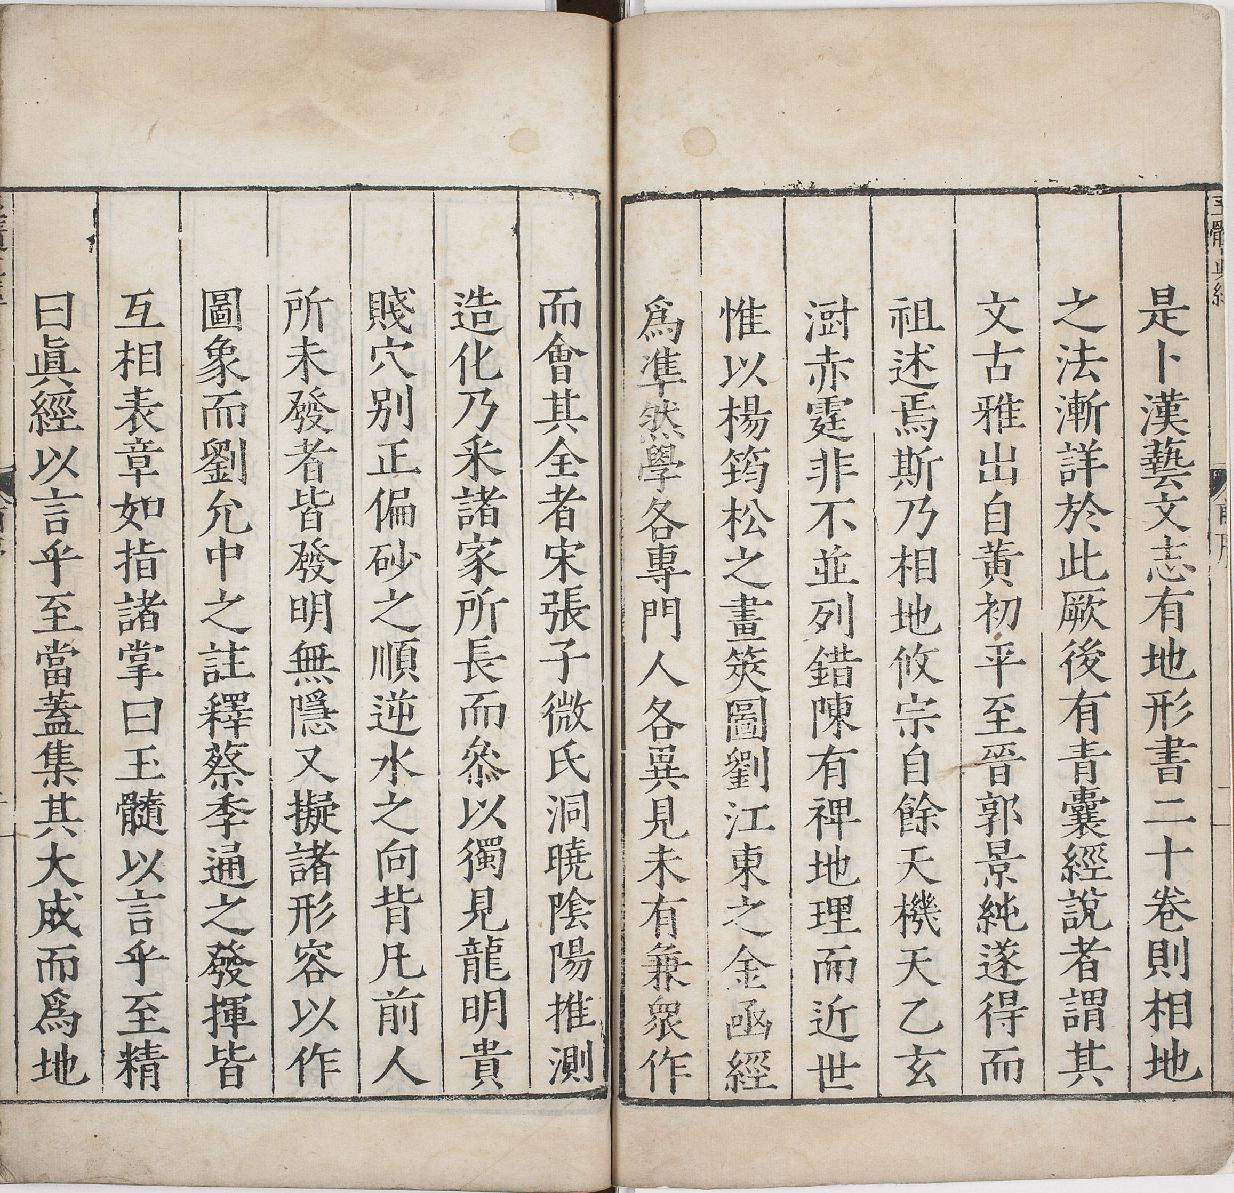 是卜漢藝文志有地形書二十卷則相地
之法漸詳於此厥後有青囊經說者謂其
文古雅出自黃初平至晉郭景純遂得而
祖述焉斯乃相地攸宗自餘天機天乙玄
澍赤霆非不並列錯陳有禆地理而近世
惟以楊筠松之畫筴圖劉江東之金函經
爲準然學各專門人各異見未有兼衆作
而會其全者宋張子微氏洞曉陰陽推測
造化乃釆諸家所長而叅以獨見龍明貴
賤穴別正偏砂之順逆水之向背凡前人
所未發者皆發明無隱又擬諸形容以作
圖象而劉允中之註釋蔡季通之發揮皆
互相表章如指諸掌曰玉髓以言乎至精
曰眞經以言乎至當蓋集其大成而爲地